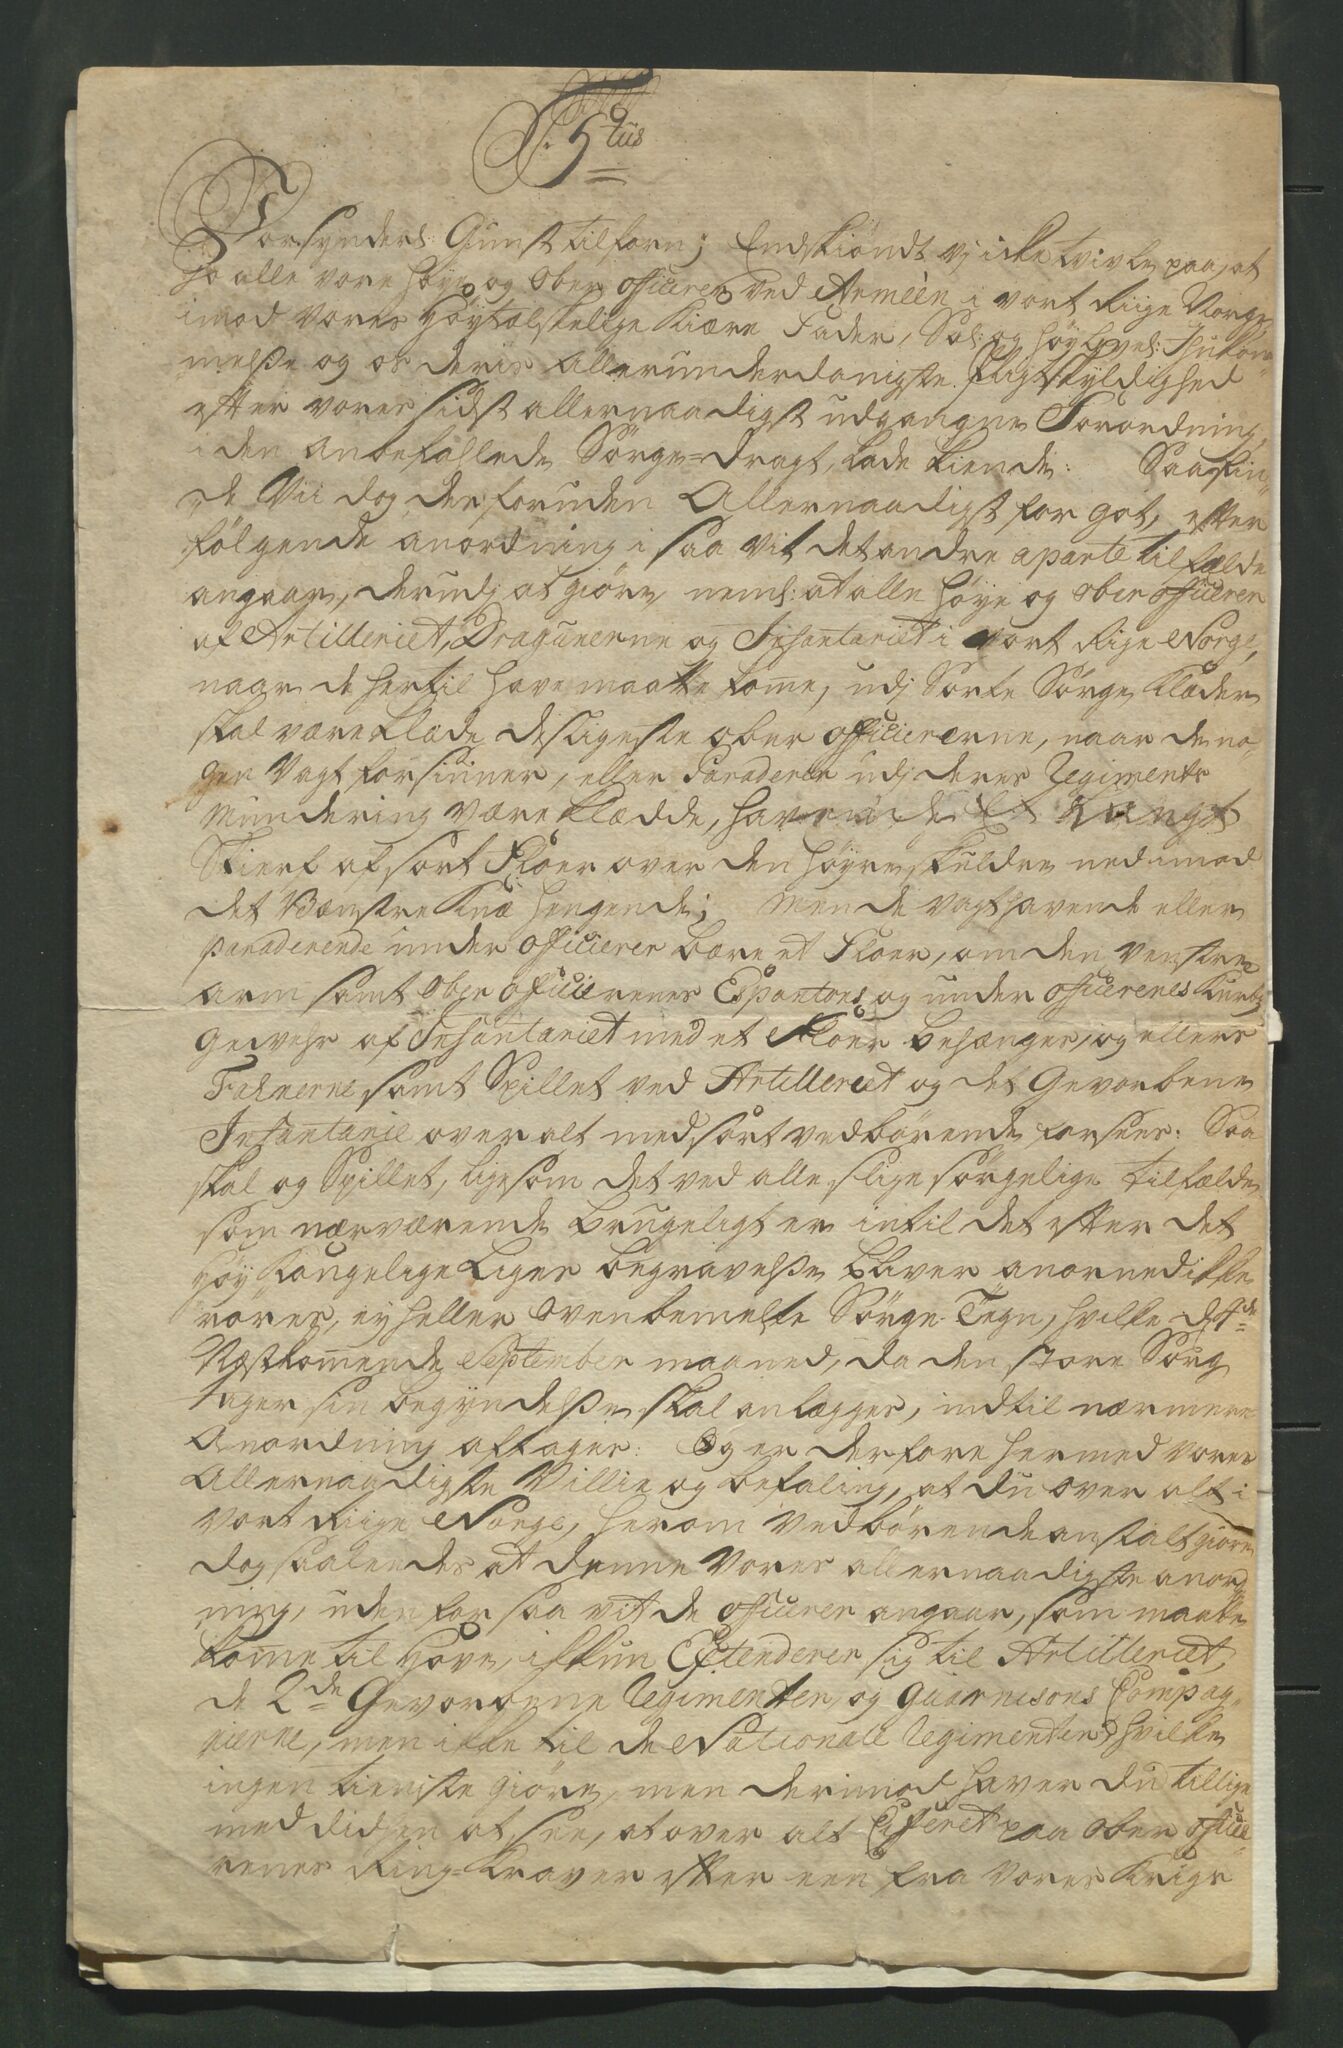 F. 5tus
Vorsynderl: Gunst tilforn; Endskiöndt Vj icke tvivle paa, at
jo alle vore høye og Ober officerer ved Arméen i vort Riige Norge,
imod Vores Høytælskelige Kiære Fader, Sal: og Høylovl: Ihukom-
melße og os deris Allerunderdanigste Pligtskyldighed
efter vores sidst allernaadigst udgangne Forordning,
i den anbefallede Sörge-Dragt, lade kiende: Saa fin-
de Vii dog derforuden Allernaadigst for got, efter
følgende anordning i saa vit det andre aparte tilfælde
angaar, derudj at giöre, neml: at alle høye og Ober officerer
af Artilleriet, Dragunerne og Infanteriet i vort Rige Norge,
naar de hertil Hove maatte komme, udj Sorte Sörge Klæder
skal være klæde, desligeste ober officiererne, naar de no-
gen Vagt forsiuner, eller Paraderer udj deres Regiments
Mundering være klædde, havende Et langt
Skierf af sort Floer over den høyre skuldre ned imod
det Venstre Knæ hengende; Men de vagthavende eller
paraderende under officierer bære et Floer, om den venstre
arm samt Ober officierernes Espontons og under officerenes Kurtz
Gewehr af Infanteriet med et Floer behænges, og ellers
Fahnerne samt Spillet ved Artilleriet og det Gevorbene
Infanterie over alt med sort vedbörende forsees: Saa
skal og Spillet, ligesom det ved alle slige sörgelige tilfælde
som nærværende brugeligt er, intil det efter det
høy Kongelige Liges begravelße bliver anorned ikke
röres, ey heller ovenbemelte Sörge Tegn, hvilke d: 4de
Næstkommende September maaned, da den store Sorg
tager sin begyndelße skal anlægges, indtil nærmere
Anordning aftages: Og er derfore hermed Vores
Allernaadigste Villie og befaling, at du over alt i
vort Riige Norge, herom vedbörende anstalt giöre,
dog saaledes at denne Vores allernaadigste anord-
ning, uden for saa vit de officerer angaar, som maatte
komme til Hove, ikkun Extenderer sig til Artilleriet,
de 2de Gevorbene Regimenter, og Guarnisons Compag-
nierne, men ikke til de Nationale Regimenter hvilke
ingen tieniste giöre, men derimod haver du tillige
med didhen at see, at over alt Cifferet paa Ober office-
renes Ring-Kraver efter een fra Vores Krigs